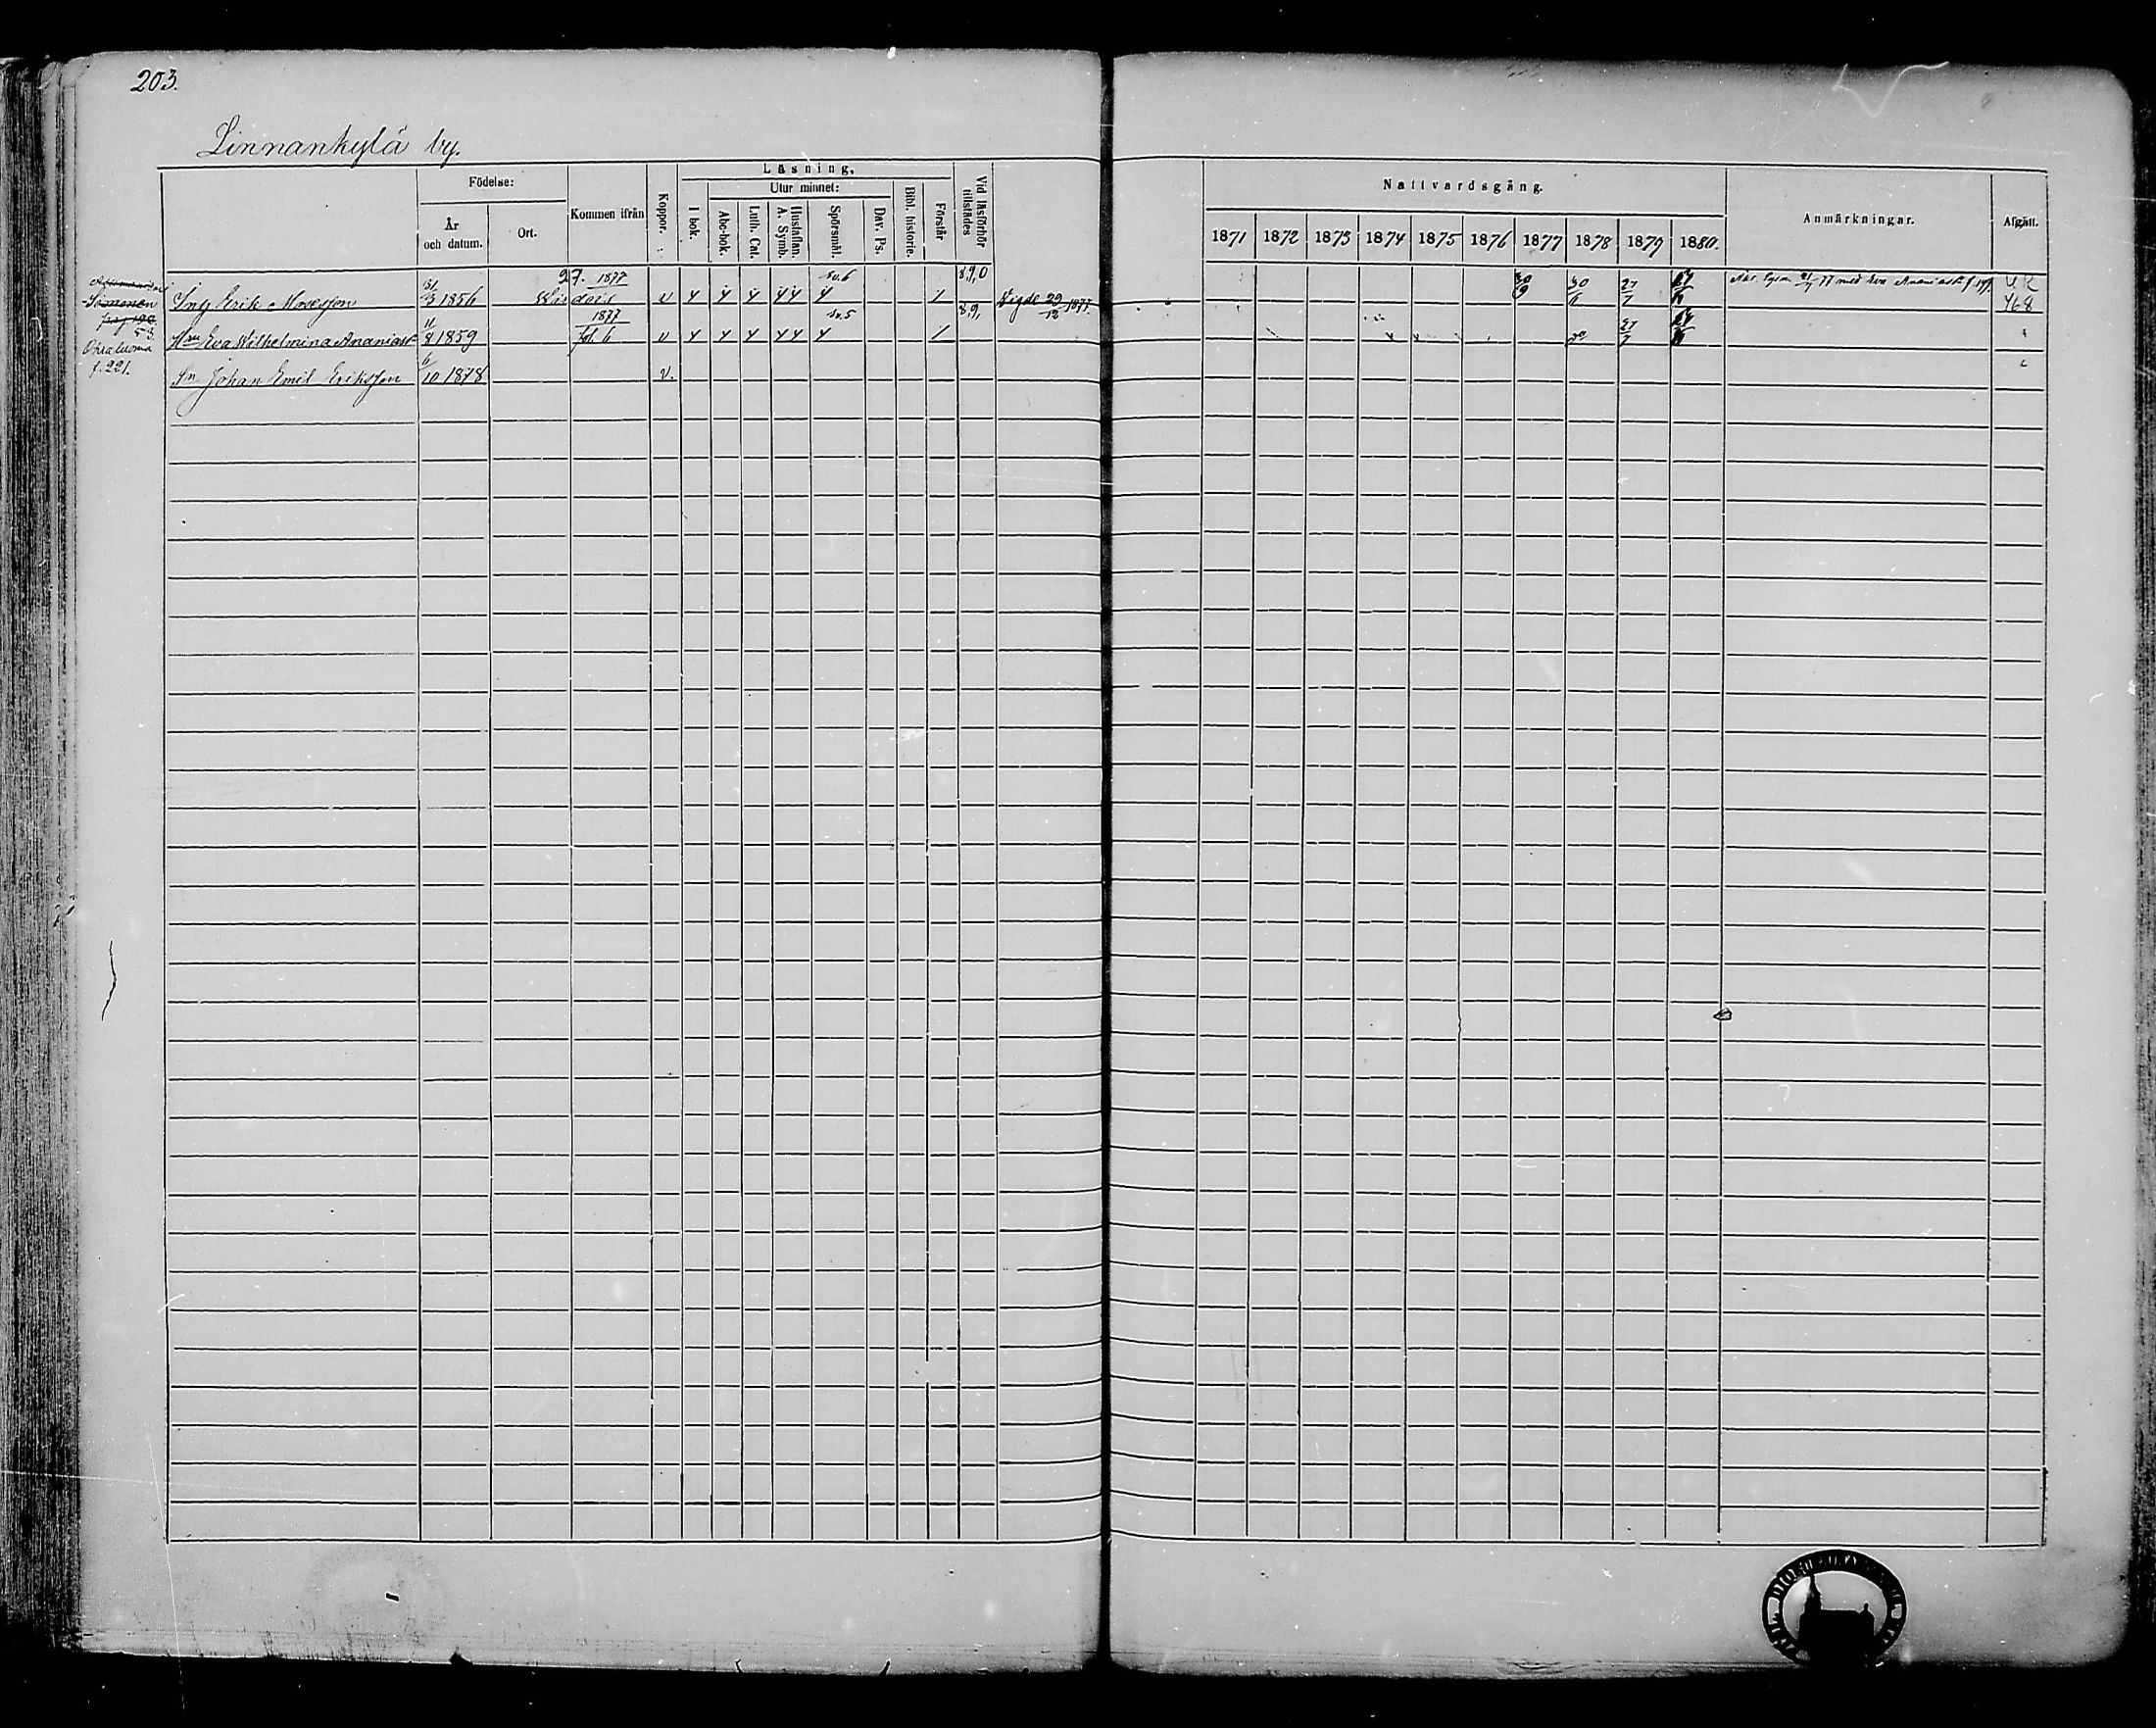 203.
Linnankylä by.
Födelse:
År och datum.
Ort.
Kommen ifrån
Koppor.
Läsning.
I bok.
Utur minnet:
Abc-bok.
Luth. Cat.
Hustaflan. A. Symb.
Spörsmål.
Dav. Ps.
Bibl. historie.
Förstår
Vid läsförhör tillstädes
Nattvardsgång.
1871 1872 1873 1874 1875 1876 1877 1878 1879 1880.
Anmärkningar.
Afgått.
Somonen
53.
f. 221.
Ing Erik Mosesson 31/3 1856 27. 1877 v sv. 6 1 8,9,0 Vigde 29/12 1877. 30/9 30/6 27/7
med Eva
UK 468
Hru Eva Wilhelmina Ananiasd 11/8 1859 1877 fol. 6 v sv. 5 1 8,9, 27/7
Sn Johan Emil Eriksson 6/10 1878 v.